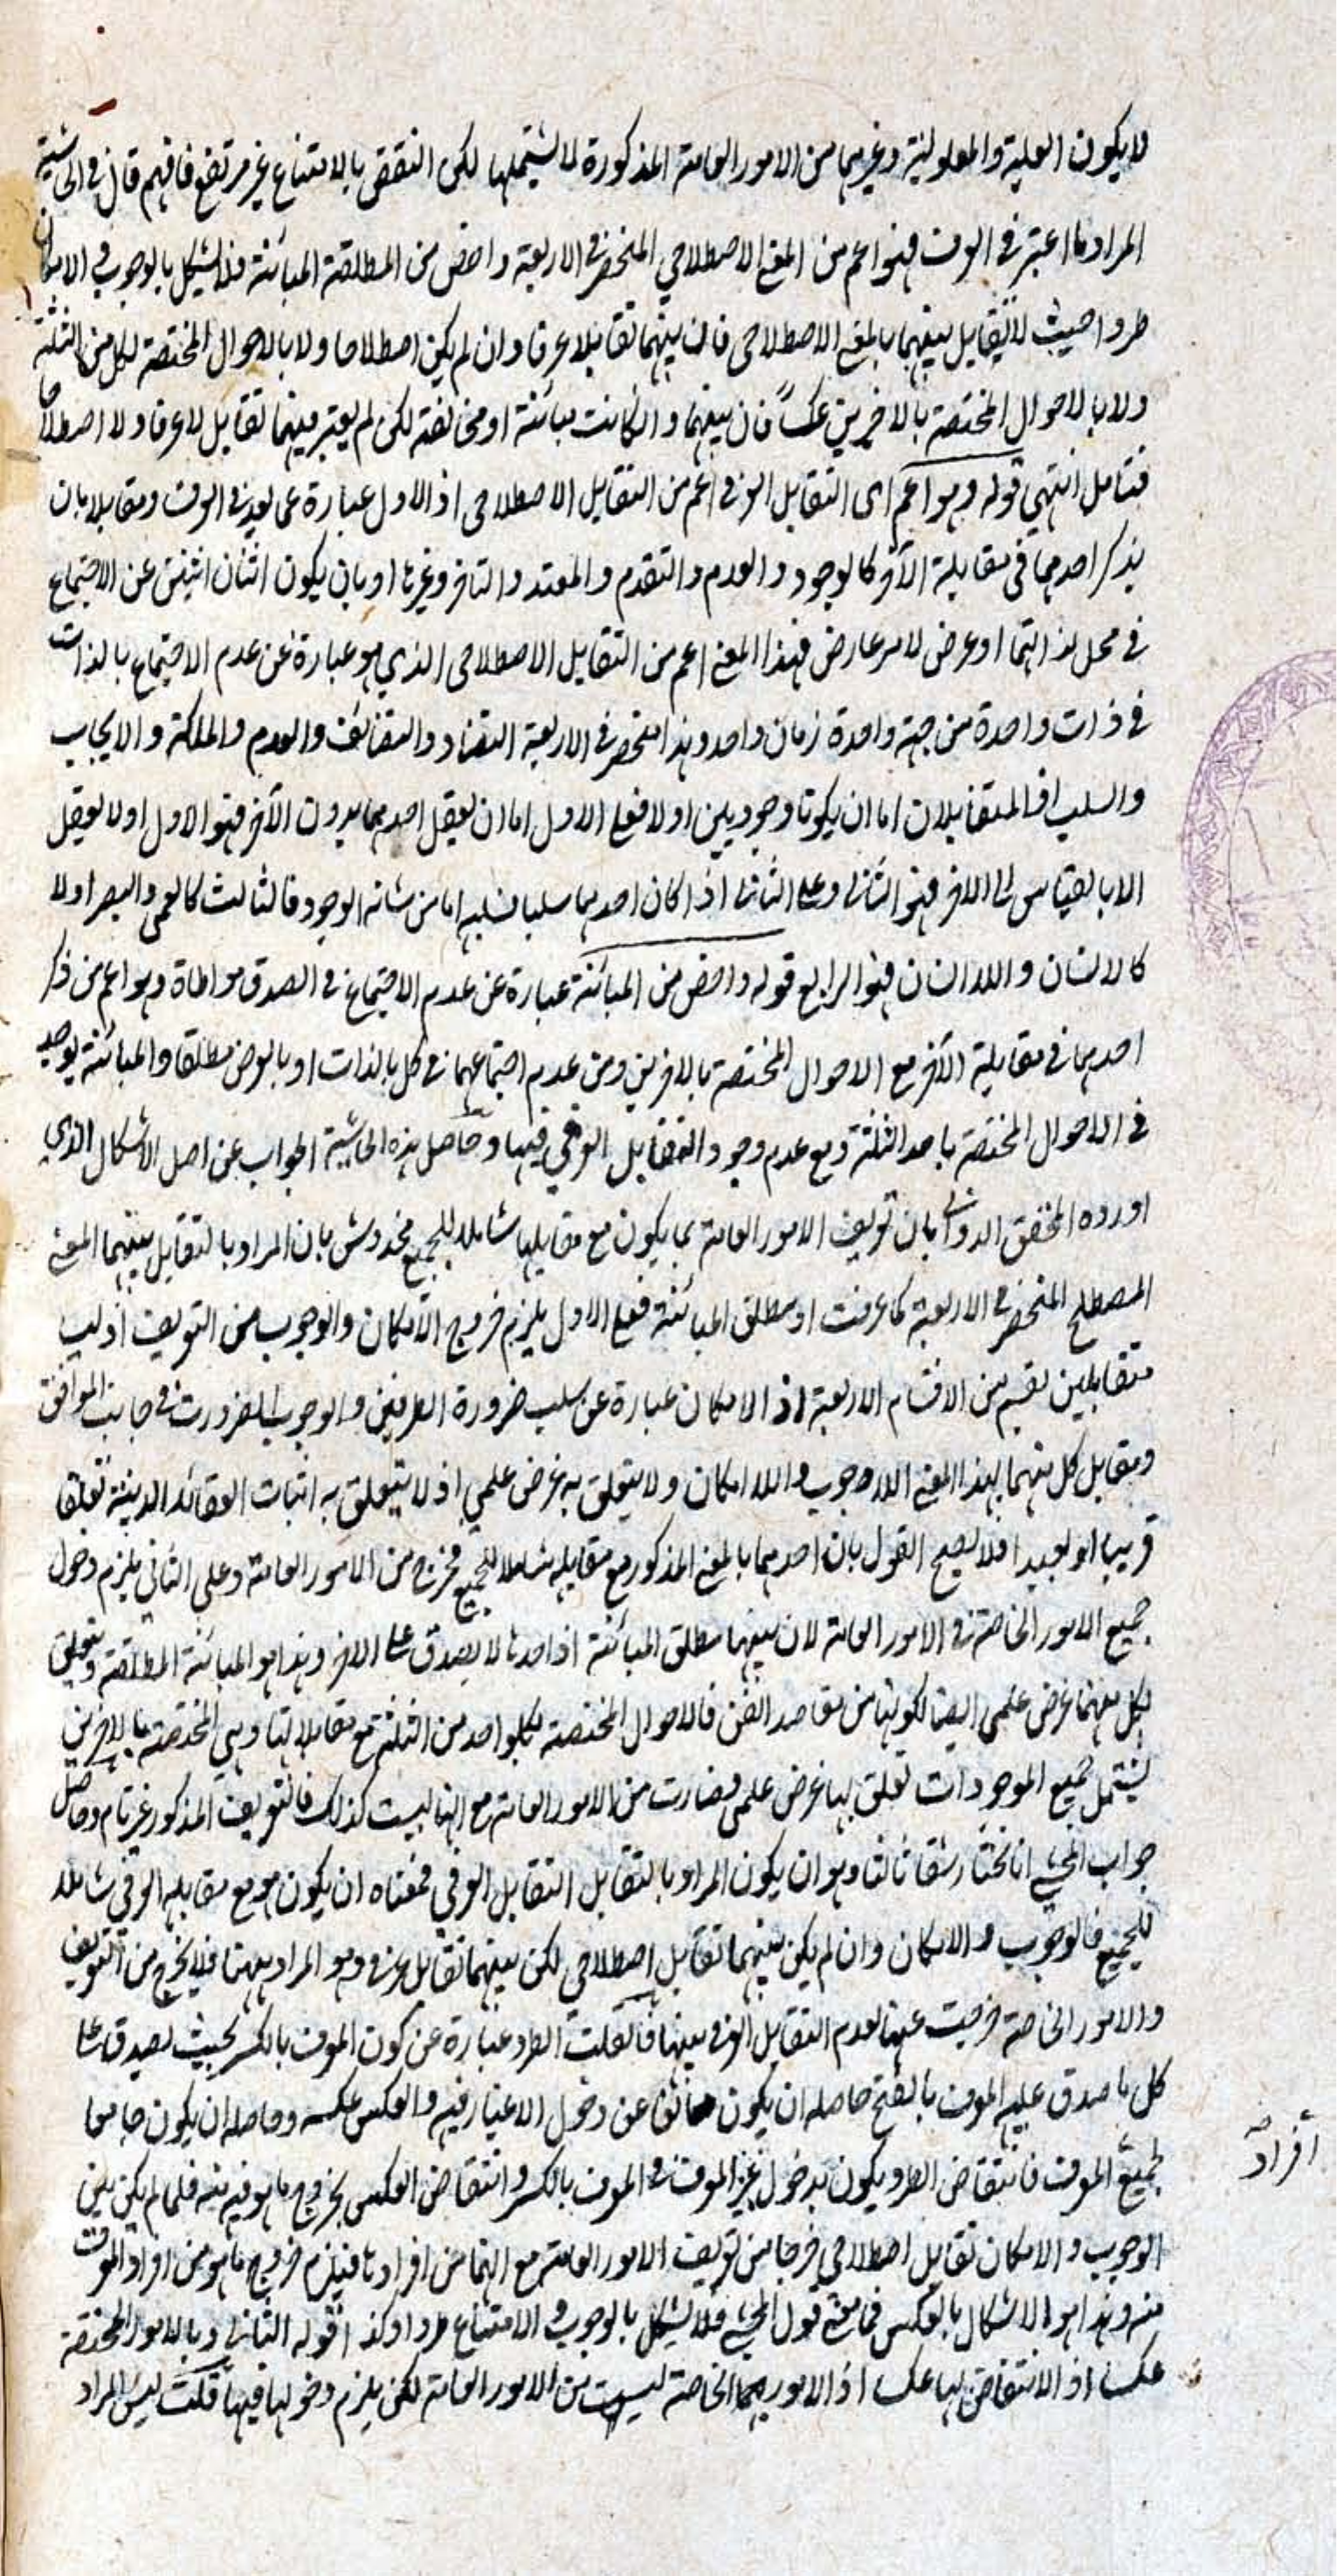 فلا يكون العلية والمعلولية وغيرهما من الامور العامة المذكورة لا يشتملها لكن النقض بالامتناع غير مرتفع فافهم قال في الحاشية
المراد ما اعتبر في العرف فهو اعم من المعنى الاصطلاحي المنحصر في الاربعة واخص من المطلقة المبائنة فلا يشكل بالوجوب والامكان
طردا حيث لا تقابل بينهما بالمعنى الاصطلاحي فان بينهما تقابلا عرفا وان لم يكن اصطلاحا ولا بالاحوال المختصة لكل من الثلثة
ولا بالاحوال المختصة بالاخرين عكسا فان بينهما وان كانت مبائنة او مخالفة لكن لم يعتبر بينهما تقابل لا عرفا ولا اصطلاحا
فتامل انتهى قوله وهو اعم اى التقابل العرفي اعم من التقابل الاصطلاحى اذ الاول عبارة عما يعد في العرف ومتقابلا بان
يذكر احدهما في مقابلة الآخر كالوجود والعدم والتقدم و والتاخر وغيرها او بان يكون اثنان اثنين عن الاجتماع
في محل لذاتهما او عرض لامر عارض فهذا المعنى اعم من التقابل الاصطلاحى الذي هو عبارة عن عدم الاجتماع بالذات
في ذات واحدة من جهة واحدة زمان واحد وهذا منحصر في الاربعة التضاد والتضائف والعدم والملكة والايجاب
والسلب اذ المتقابلان اما ان يكونا وجوديين اولا فعلى الاول اما ان يعقل احدهما بدون الآخر فهو الاول اولا يعقل
الا بالقياس الى الاخر فهو الثاني وعلى الثاني اذا كان احدهما سلبا فسلبه اما من شانه الوجود فالثالث كالعمى والبصر اولا
كالانسان واللا انسان فهو الرابع قوله واخص من المبائنة عبارة عن عدم الاجتماع في الصدق مواطاة وهو اعم من ذكر
احدهما في مقابلة الآخر مع الاحوال المختصة بالاخرين ومن عدم اجتماعهما في كل بالذات او بالعرض مطلقا والمبائنة يوجد
في الاحوال المختصة باحد الثلثة ومع عدم وجود التقابل العرفي فيها وحاصل هذه الحاشية الجواب عن اصل الاشكال الذي
اورده المحقق الدواني بان تعريف الامور العامة بما يكون مع مقابلها شاملا للجميع مخدوش بان المراد بالتقابل بينهما المعنى
المصطلح المنحصر في الاربعة كما عرفت او مطلق المبائنة فعلى الاول يلزم خروج الامكان والوجوب من التعريف اذ ليسا
متقابلين بقسم من الاقسام الاربعة اذ الامكان عبارة عن سلب ضرورة الطرفين والوجوب الضرورة في جانب الموافق
ومقابل كل منهما بهذا المعنى اللا وجوب واللا امكان ولا يتعلق به غرض علمي اذ لا يتعلق به اثبات العقائد الدينية تعلقا
قريبا او بعيدا فلا يصح القول بان احدهما بالمعنى المذكور مع مقابله شاملا للجميع فخرج من الامور العامة وعلى الثاني يلزم دخول
جميع الامور الخاصة في الامور العامة لان بينهما مطلق المبائنة اذ احدها لا يصدق على الاخر وهذا هو المبائنة المطلقة ويتعلق
بكل منهما غرض علمي ايضا لكونها من مقاصد الفن فالاحوال المختصة بكل واحد من الثلثة مع مقابلاتها وهي المختصة بالاخرين
يشتمل جميع الموجودات تعلق بها غرض علمي فصارت من الامور العامة مع انها ليست كذلك فالتعريف المذكور غير تام وحاصل
جواب المحشي انا نختار شقا ثالثا وهو ان يكون المراد بالتقابل التقابل العرفي فمعناه ان يكون هو مع مقابله العرفي شاملا
للجميع فالوجوب والامكان وان لم يكن بينهما تقابل اصطلاحي لكن بينهما تقابل عرفي وهو المراد ههنا فلا يخرج من التعريف
والامور الخاصة خرجت عنها لعدم التقابل العرفي بينها فان قلت الطرد عبارة عن كون المعرف بالكسر بحيث يصدق على
كل ما صدق عليه المعرف بالفتح حاصله ان يكون مانعا عن دخول الاغيار فيه والعكس عكسه وحاصله ان يكون جامعا
لجميع المعرف فانتقاض الطرد يكون بدخول غير المعرف في المعرف بالكسر وانتقاض العكس بخروج ما هو فيه منه فلما لم يكن بين
الوجوب والامكان تقابل اصطلاحي خرجا من تعريف الامور العامة مع انهما من افرادها فيلزم خروج ما هو من افراد المعرف
منه وهذا هو الاشكال بالعكس فما معنى قول المحشي فلا يشكل بالوجوب والامتناع طردا وكذا قوله الثاني وبالامور المختصة
عكسا اذ الانتقاض بها عكسا اذ الامور الخاصة ليست من الامور العامة لكن يلزم دخولها فيها قلت ليس المراد
افراد صح